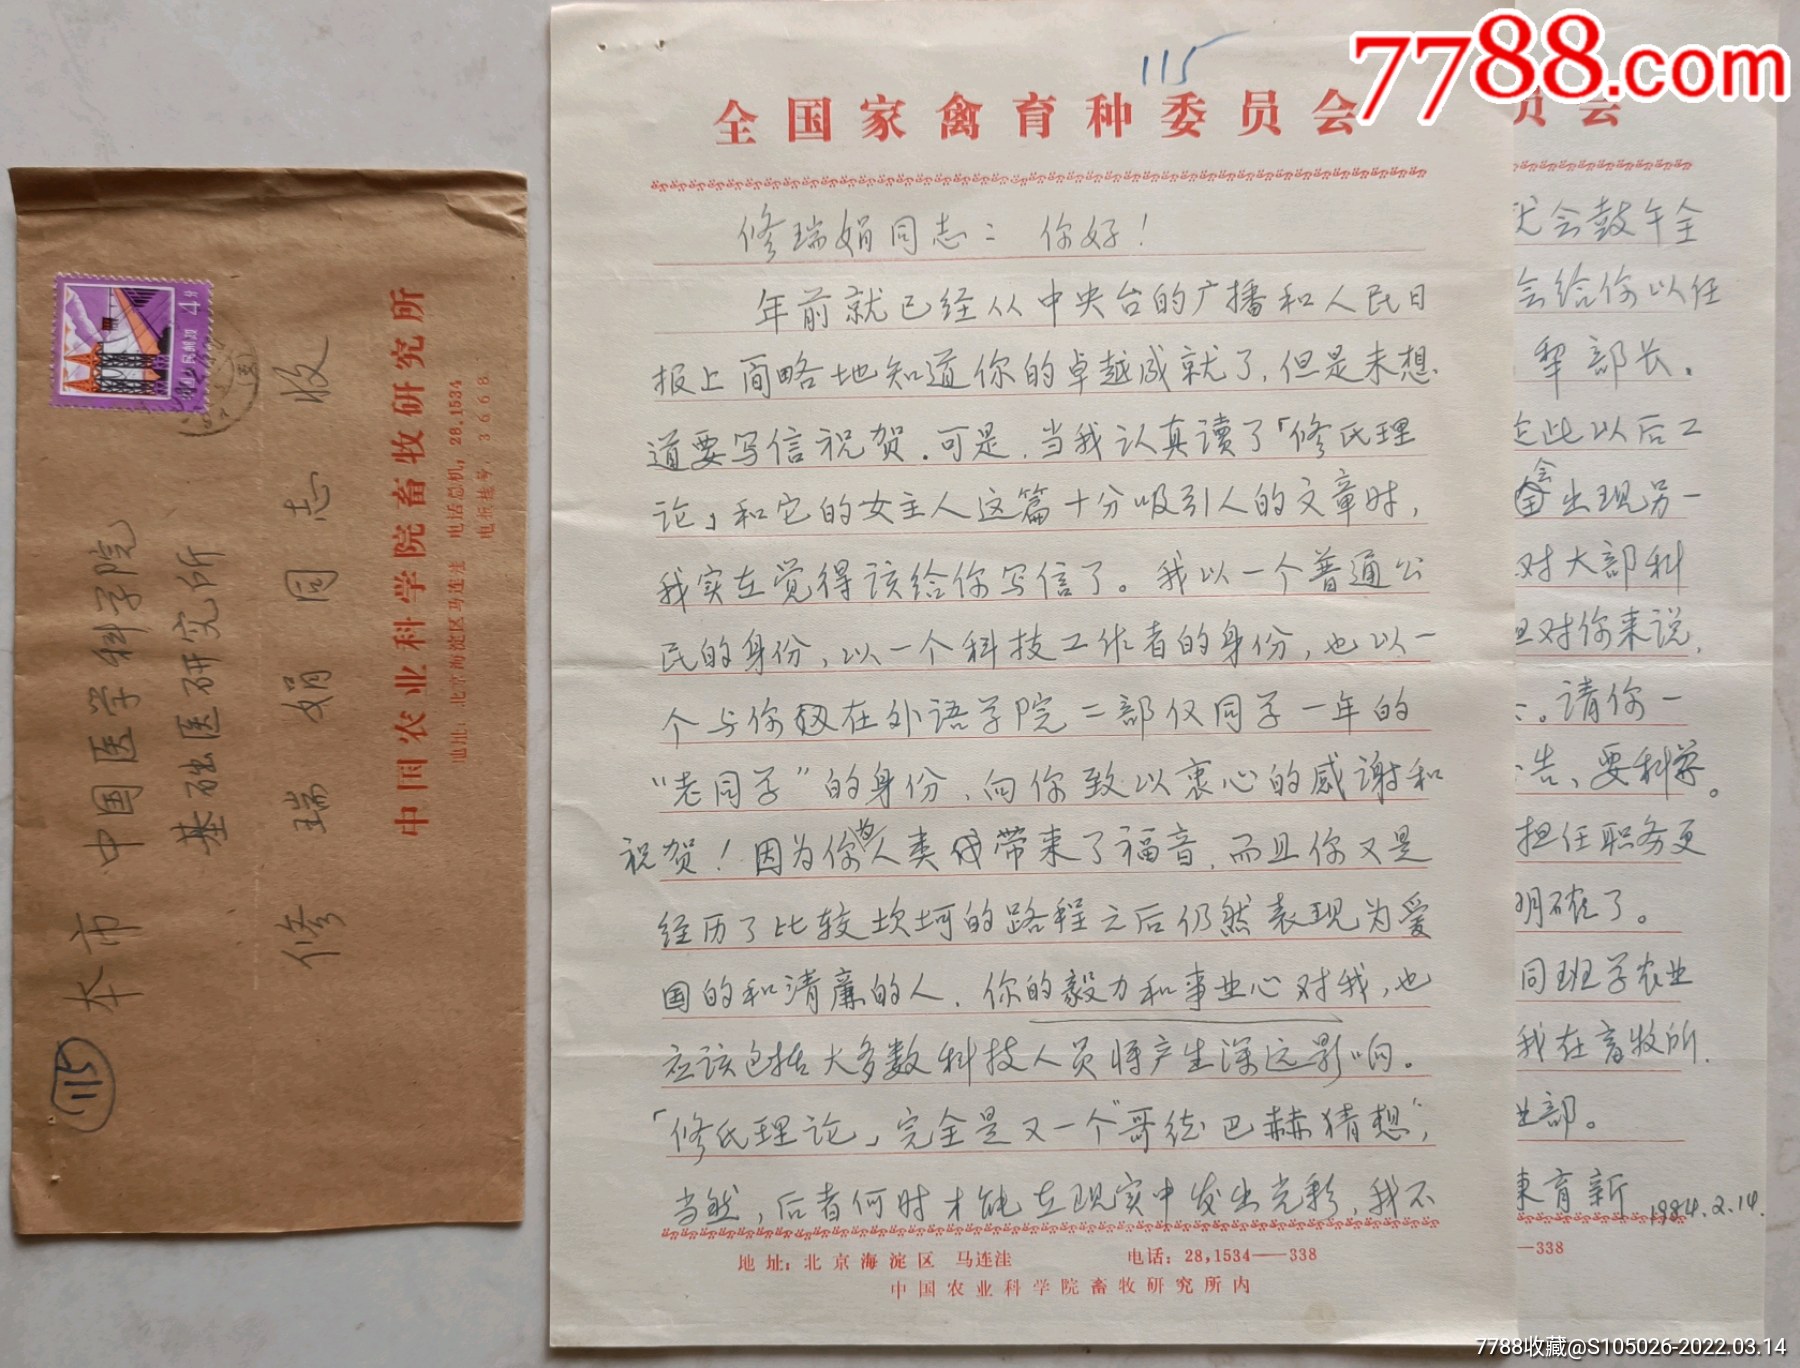 7788.com
115
全国家禽育种委员会
修瑞娟同志：你好！
年前就已经从中央台的广播和人民日
报上简略地知道你的卓越成就了，但是未想
道要写信祝贺．可是，当我认真读了「修氏理
论」和它的女主人这篇十分吸引人的文章时，
我实在觉得该给你写信了。我以一个普通公
民的身份，以一个科技工作者的身份，也以一
个与你在外语学院二部仅同学一年的
“老同学”的身份，向你致以衷心的感谢和
祝贺！因为你为人类带来了福音，而且你又是
经历了比较坎坷的路程之后仍然表现为爱
国的和清廉的人．你的毅力和事业心对我，也
应该包括大多数科技人员将产生深远影响。
「修氏理论」完全是又一个“哥德巴赫猜想”，
当然，后者何时才能在现实中发出光彩，我不
地址：北京海淀区 马连洼 电话：28,1534——338
中国农业科学院畜牧研究所内
员会
会鼓午全
会给你以任
犁部长．
此以后工
会出现另一
对大部科
但对你来说，
。请你一
告、要科学。
担任职务更
明确了。
同班学农业
我在畜牧所．
业部。
東育新 1984.2.14.
—338
4分
本市 中国医学科学院
基础医研究所
修瑞娟同志 收
中国农业科学院畜牧研究所
地址：北京海淀区马连洼 电话总机，28.1534
电报挂号，3668
115
7788收藏@S105026-2022.03.14